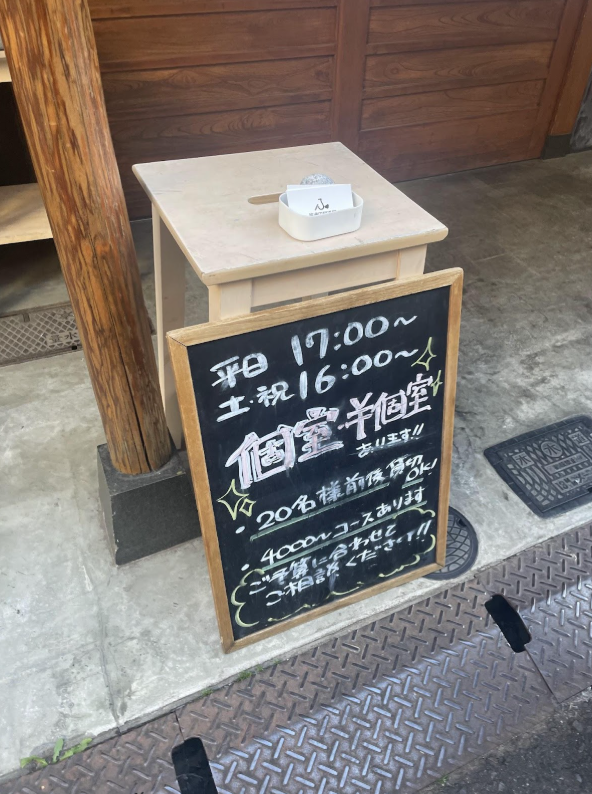 平日 17:00～
土・祝 16:00～
個室・半個室
あります!!
・20名様前後貸切OK!
・4000～コースあります
ご予算に合わせて
ご相談ください!!